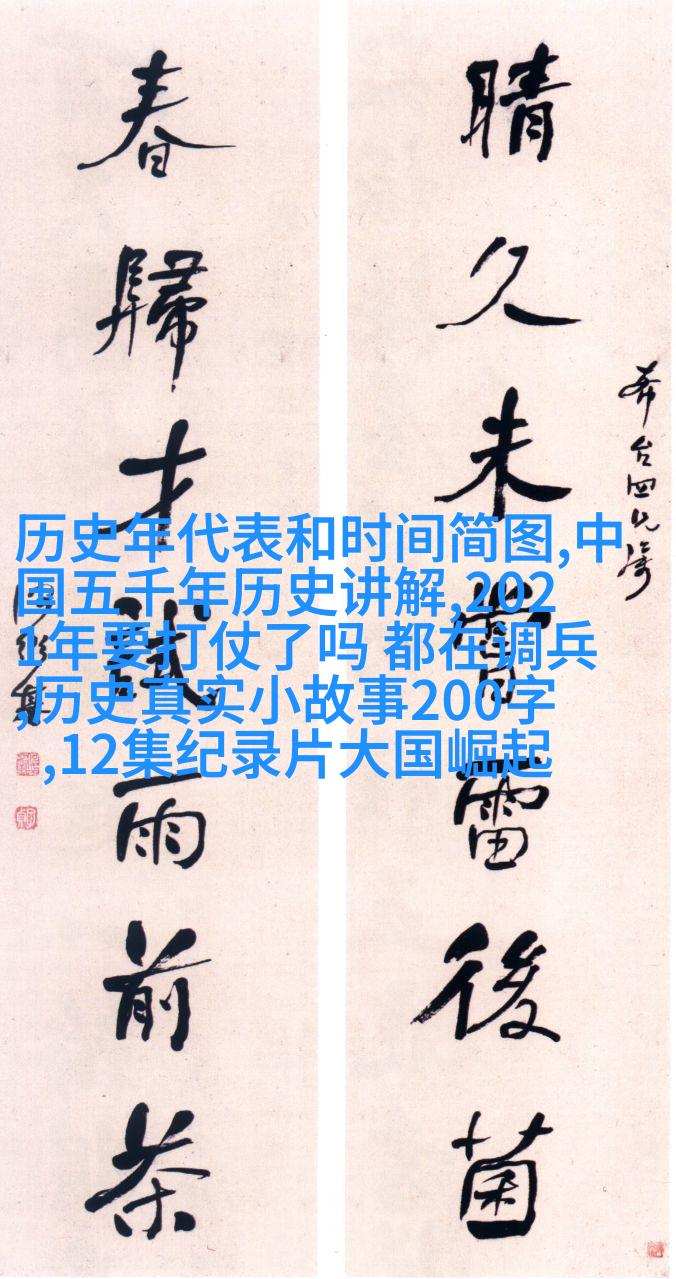 晴久未嘗雷後菌
春歸才試雨前茶
历史年代表和时间简图,中
国五千年历史讲解,202
1年要打仗了吗 都在调兵
,历史真实小故事200字
,12集纪录片大国崛起